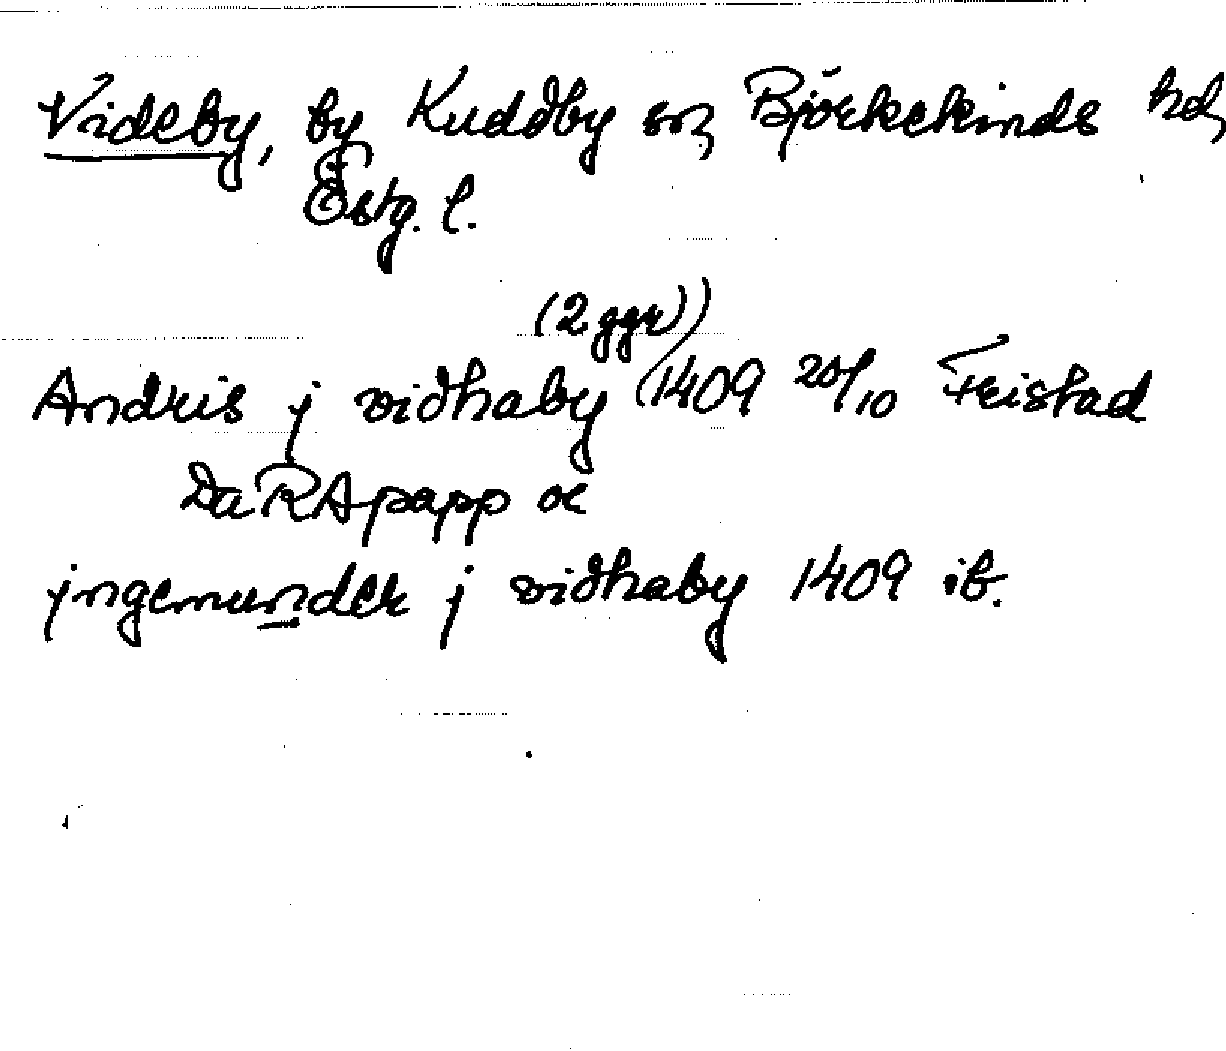 Videby, by Kuddby sn, Björkekinds hd,
Östg. l.
(2 ggr))
Andris j vidhaby (1409 20/10 Fristad
Da RA papp oc
jngemunder j vidhaby 1409 ib.